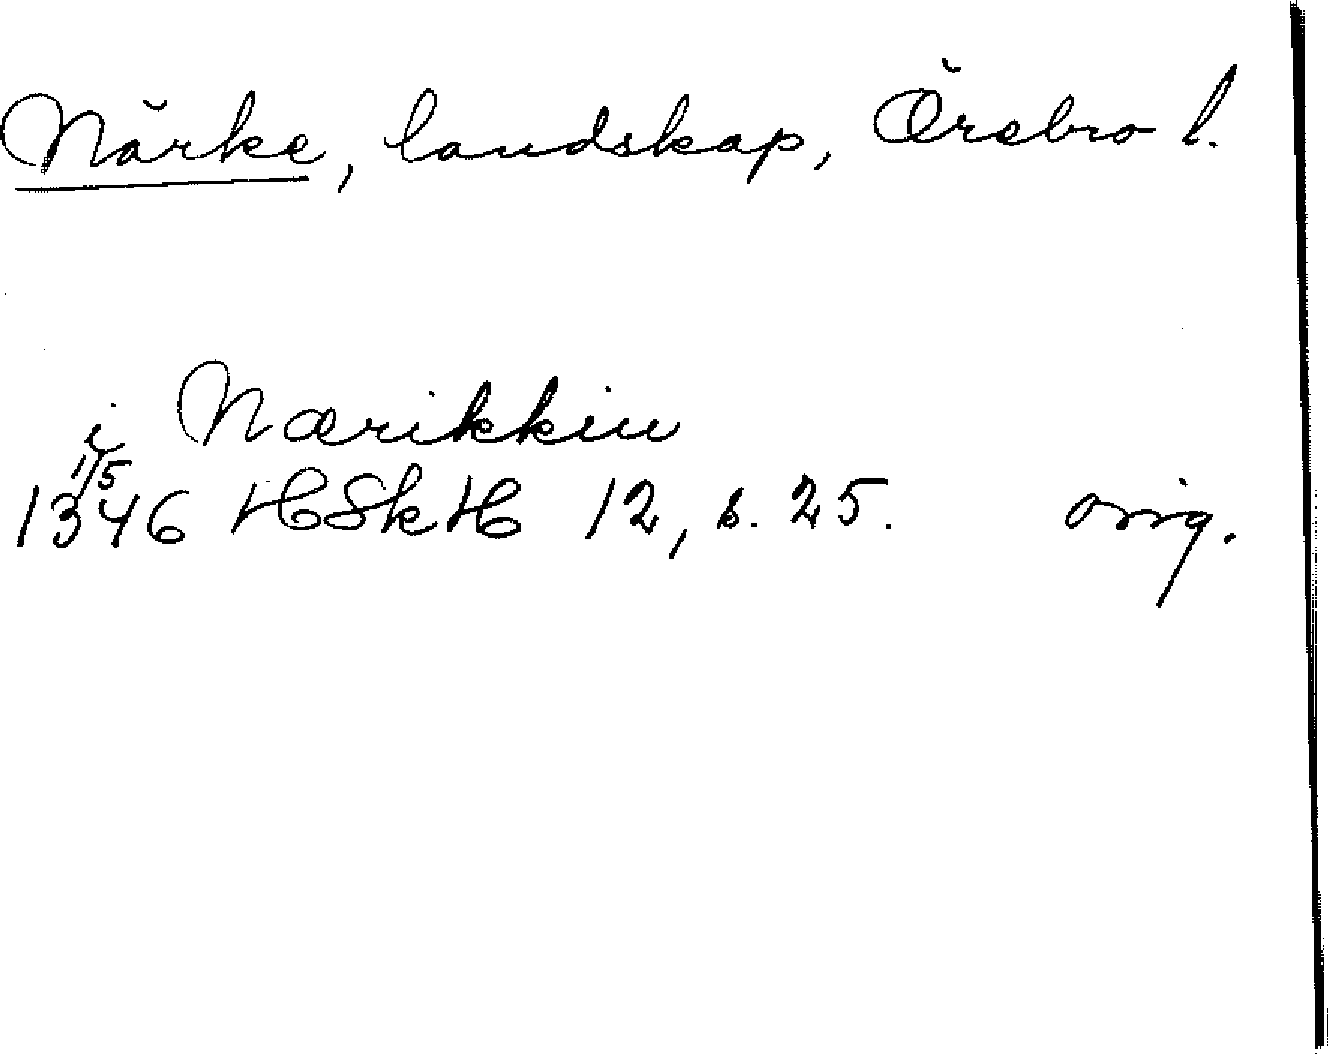 Närke, landskap, Örebro l.
i Nærikkiu
1/5
1346 HSkH 12, s. 25. orig.